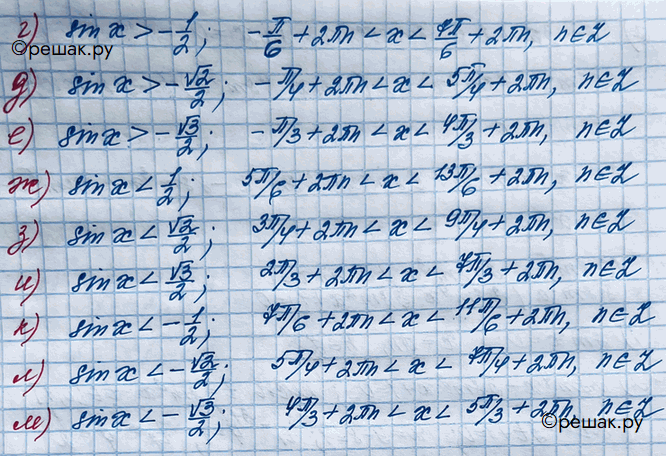 г) sin x > -1/2; -π/6 + 2πn < x < 7π/6 + 2πn, n∈Z
©решак.ру
д) sin x > -√2/2; -π/4 + 2πn < x < 5π/4 + 2πn, n∈Z
е) sin x > -√3/2; -π/3 + 2πn < x < 4π/3 + 2πn, n∈Z
ж) sin x < 1/2; 5π/6 + 2πn < x < 13π/6 + 2πn, n∈Z
з) sin x < √2/2; 3π/4 + 2πn < x < 9π/4 + 2πn, n∈Z
и) sin x < √3/2; 2π/3 + 2πn < x < 7π/3 + 2πn, n∈Z
к) sin x < -1/2; 7π/6 + 2πn < x < 11π/6 + 2πn, n∈Z
л) sin x < -√2/2; 5π/4 + 2πn < x < 7π/4 + 2πn, n∈Z
м) sin x < -√3/2; 4π/3 + 2πn < x < 5π/3 + 2πn, n∈Z
©решак.ру